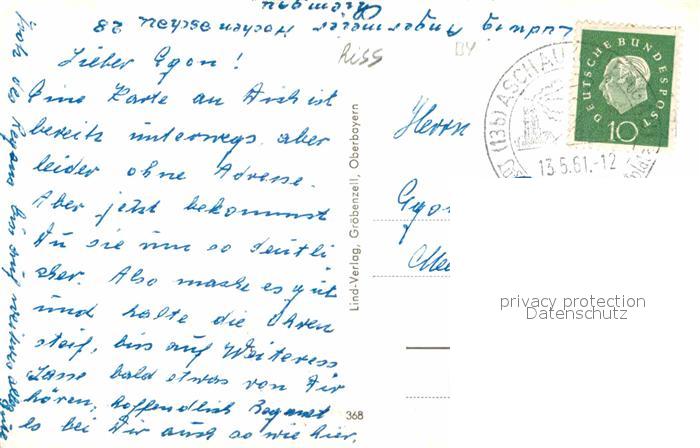 Ludwig Angermaier Hochenaschau 28
Chiemgau
Riss
BY
Lieber Egon!
Eine Karte an Dich ist
bereits unterwegs aber
leider ohne Adresse.
Aber jetzt bekommst
Du sie um so deutli
cher. Also mache es gut
und halte die Ohren
steif, bis auf Weiteres
Lasse bald etwas von Dir
hören, hoffendlich Regnet
es bei Dir auch so wie hier.
Trotz des Regens bis auf weiteres alles gute
Lind-Verlag, Gröbenzell, Oberbayern
368
Herrn
Egon
(13b) ASCHAU
13.5.61.-12
DEUTSCHE BUNDESPOST
10
privacy protection
Datenschutz